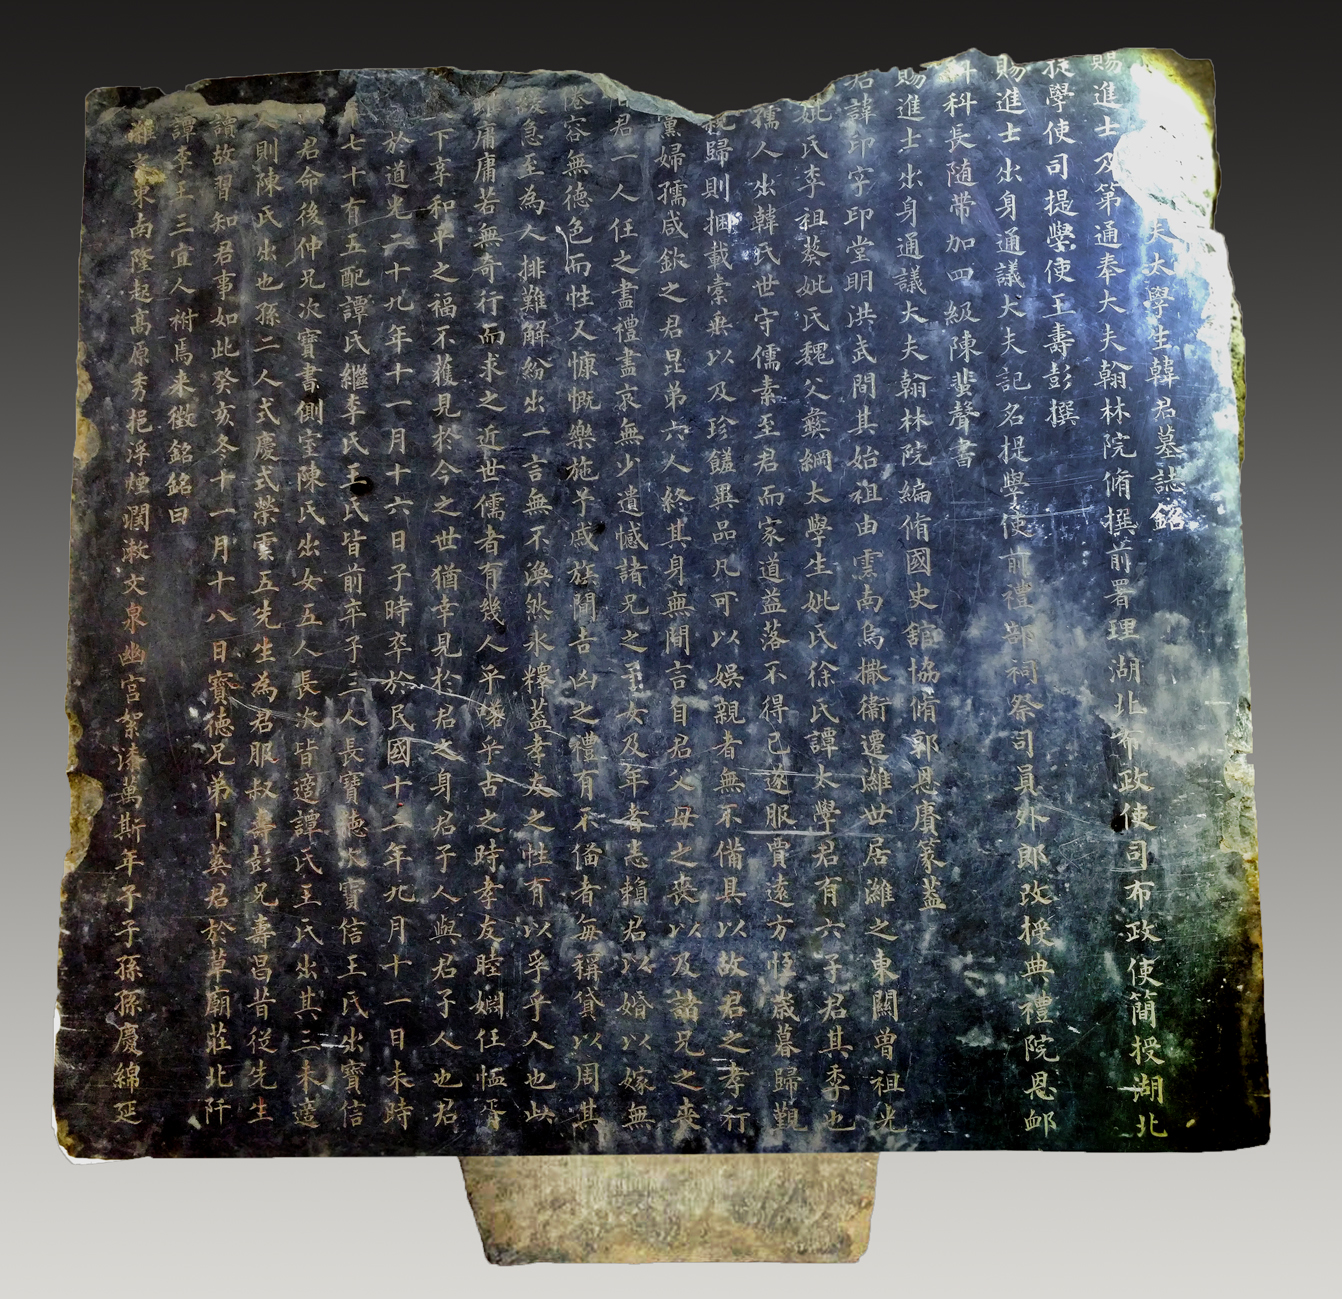 夫太學生韓君墓誌銘
賜進士及第通奉大夫翰林院脩撰前署理湖北布政使司布政使簡授湖北
提學使司提學使王壽彭撰
賜進士出身通議大夫記名提學使前禮部祠祭司員外郎改授典禮院恩卹
科科長隨帶加四級陳蜚聲書
賜進士出身通議大夫翰林院編脩國史館協脩郭恩賡篆蓋
君諱印字印堂明洪武間其始祖由雲南烏撒衞遷濰世居濰之東關曾祖光
妣氏李祖蓁妣氏魏父彝綱太學生妣氏徐氏譚太學君有六子君其季也
孺人出韓氏世守儒素至君而家道益落不得已遂服賈遠方恆歲暮歸覲
親歸則捆載橐乘以及珍饈異品凡可以娛親者無不備具以故君之孝行
黨婦孺咸欽之君昆弟六人終其身無間言自君父母之喪以及諸兄之喪
君一人任之盡禮盡哀無少遺憾諸兄之子女及年者悉賴君以婚以嫁無
容無德色而性又慷慨樂施予戚族間吉凶之禮有不備者每稱貸以周其
緩急至為人排難解紛出一言無不渙然冰釋蓋孝友之性有以孚乎人也此
庸庸若無奇行而求之近世儒者有幾人乎嗟乎古之時孝友睦婣任恤胥
下享和平之福不獲見於今之世猶幸見於君之身君子人與君子人也君
於道光二十九年十一月十六日子時卒於民國十二年九月十一日未時
年七十有五配譚氏繼李氏王氏皆前卒子三人長寶德次寶信王氏出寶信
君命後仲兄次寶書側室陳氏出女五人長次皆適譚氏王氏出其三未適
則陳氏出也孫二人式慶式榮雲五先生為君服叔壽彭兄壽昌昔從先生
讀故習知君事如此癸亥冬十一月十八日寶德兄弟卜葬君於草廟莊北阡
譚李王三宜人祔焉來徵銘銘曰
濰水東南隆起高原秀挹浮煙潤漱文泉幽宮絮漆萬斯年子子孫孫慶綿延